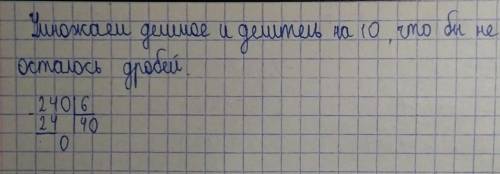 Умножаем делимое и делитель на 10, что бы не
осталось дробей.
-240|6
24 40
0